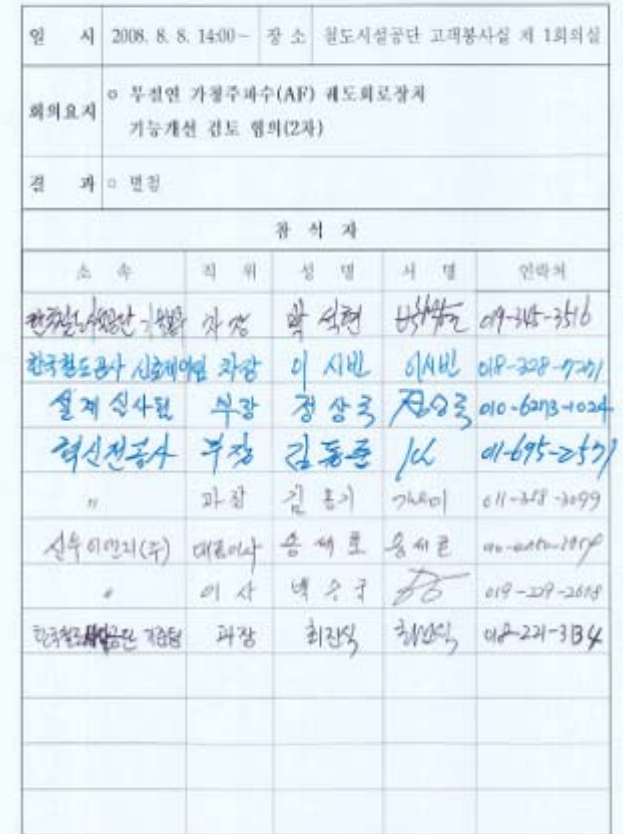 일 시 2008. 8. 8. 14:00~ 장 소 철도시설공단 고객봉사실 제 1회의실
회의요지 ○ 무절연 가청주파수(AF) 궤도회로장치
기능개선 검토 협의(2차)
결 과 ○ 별첨
참 석 자
소 속 직 위 성 명 서 명 연락처
한국철도시설공단 차장 박석현 019-345-3516
한국철도공사 신호제어팀 차장 이시빈 이시빈 018-328-7271
설계심사팀 부장 정상국 정상국 010-6273-1024
혁신전공사 부장 김동준 011-695-2571
" 과장 김용기 011-358-3099
신우이엔지(주) 대표이사 송세호
" 이사 019-229-2618
한국철도시설공단 기준팀 과장 최진식 최진식 018-221-3134